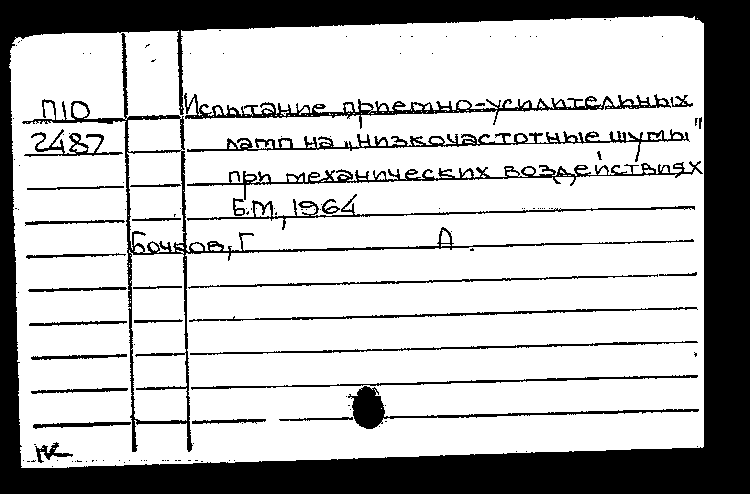 П10 Испытание приемно-усилительных
2487 ламп на „низкочастотные шумы"
при механических воздействиях
Б.М., 1964
Бочков, Г А.